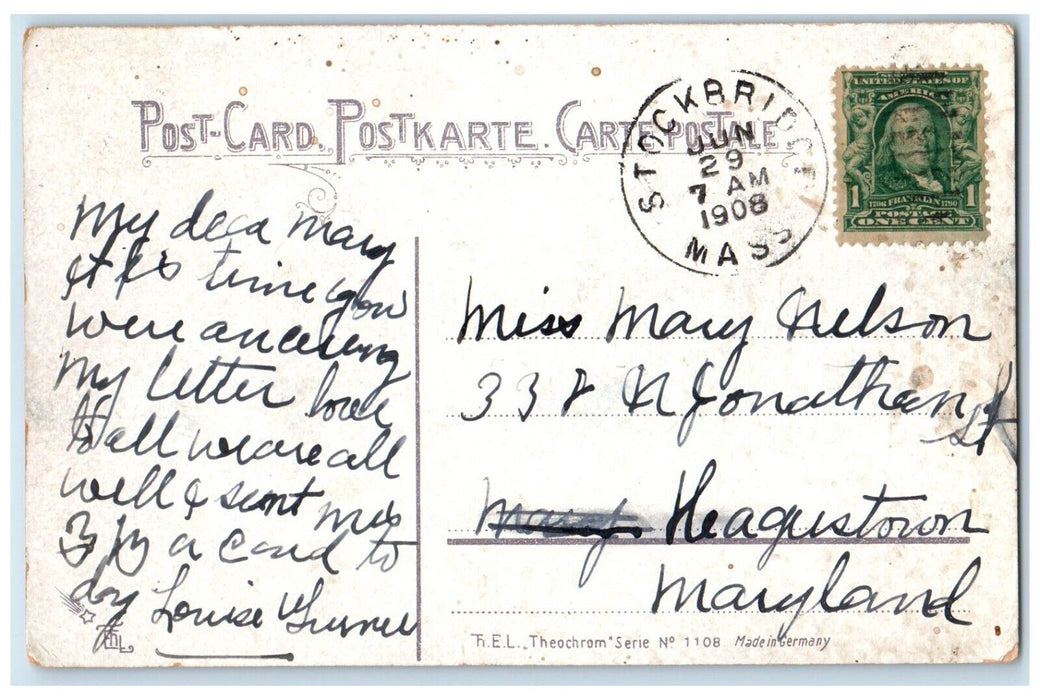 POST-CARD. POSTKARTE. CARTE POSTALE
STOCKBRIDGE
JUN
29
7 AM
1908
MASS
UNITED STATES OF
AMERICA
1 1
1706 FRANKLIN 1790
POSTAGE
ONE CENT
My dear Mary
it is time you
were ancering
my letter love
to all we are all
well & sent Mrs
a Card to
day Louise Turner
Miss Mary Nelson
338 N Jonathan St
Heagustown
Maryland
T.H.E.L. „Theochrom" Serie No 1108 Made in Germany